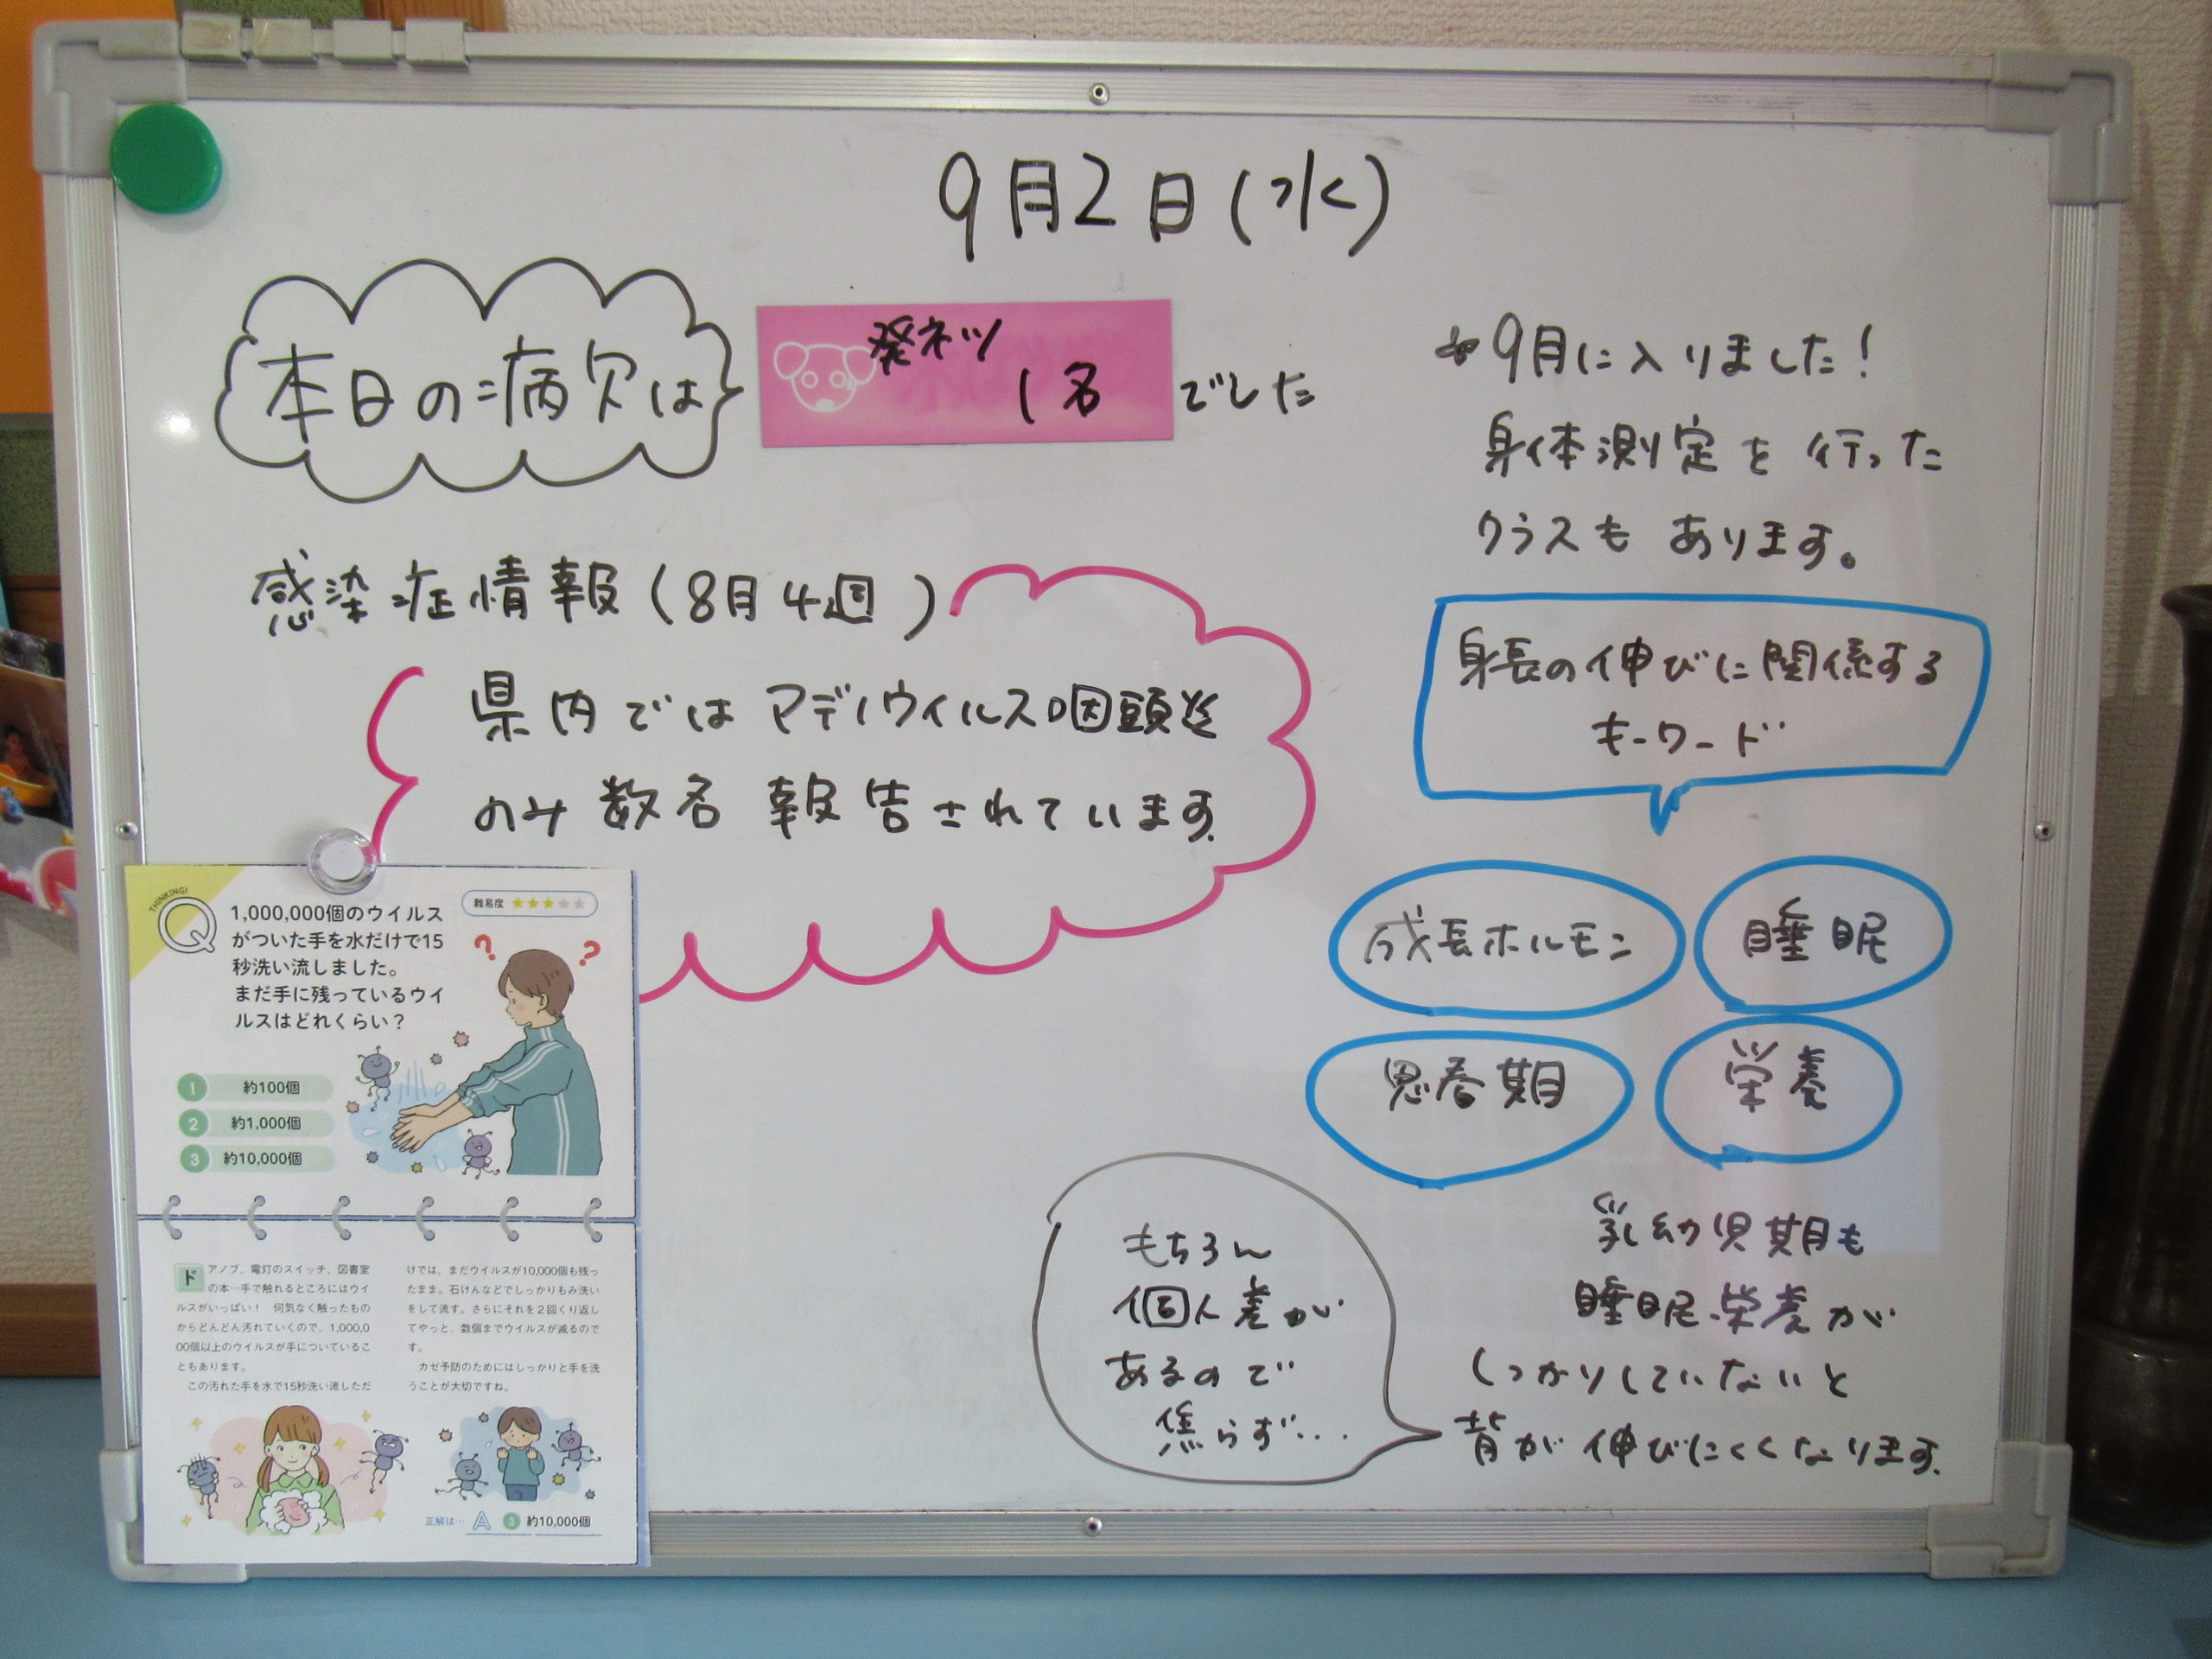 9月2日(水)
本日の病欠は
発ネツ
1名
でした
感染症情報(8月4週)
県内ではアデノウイルス咽頭炎
のみ数名報告されています。
*9月に入りました!
身体測定を行った
クラスもあります。
身長の伸びに関係する
キーワード
成長ホルモン
睡眠
思春期
栄養
乳幼児期も
睡眠・栄養が
しっかりしていないと
背が伸びにくくなります。
もちろん
個人差が
あるので
焦らず…
THINKING!
Q
1,000,000個のウイルス
がついた手を水だけで15
秒洗い流しました。
まだ手に残っているウイ
ルスはどれくらい?
難易度 ★★★☆☆
? ?
1 約100個
2 約1,000個
3 約10,000個
ドアノブ、電灯のスイッチ、図書室
の本…手で触れるところにはウイ
ルスがいっぱい! 何気なく触ったもの
からどんどん汚れていくので、1,000,0
00個以上のウイルスが手についているこ
ともあります。
この汚れた手を水で15秒洗い流しただ
けでは、まだウイルスが10,000個も残っ
たまま。石けんなどでしっかりもみ洗い
をして流す。さらにそれを2回くり返し
てやっと、数個までウイルスが減るので
す。
カゼ予防のためにはしっかりと手を洗
うことが大切ですね。
正解は… A 3 約10,000個